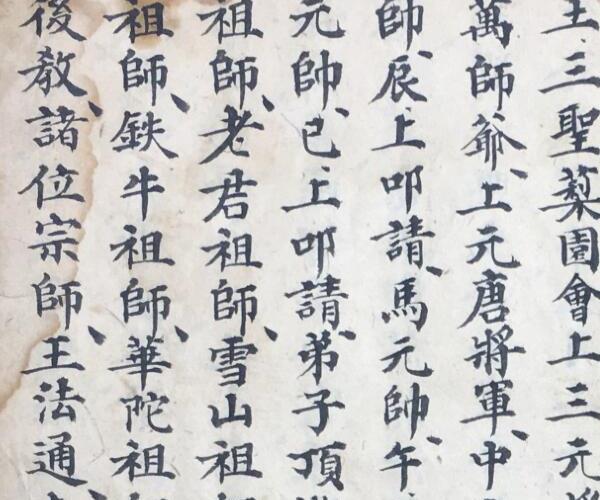 王三聖棃園會上三元
萬師爺、上元唐將軍、中
師、辰上叩請、馬元帥、午、
元帥、巳上叩請、弟子頂
祖師、老君祖師、雪山祖
祖師、鉄牛祖師、華陀祖
後教、諸位宗師、王法通